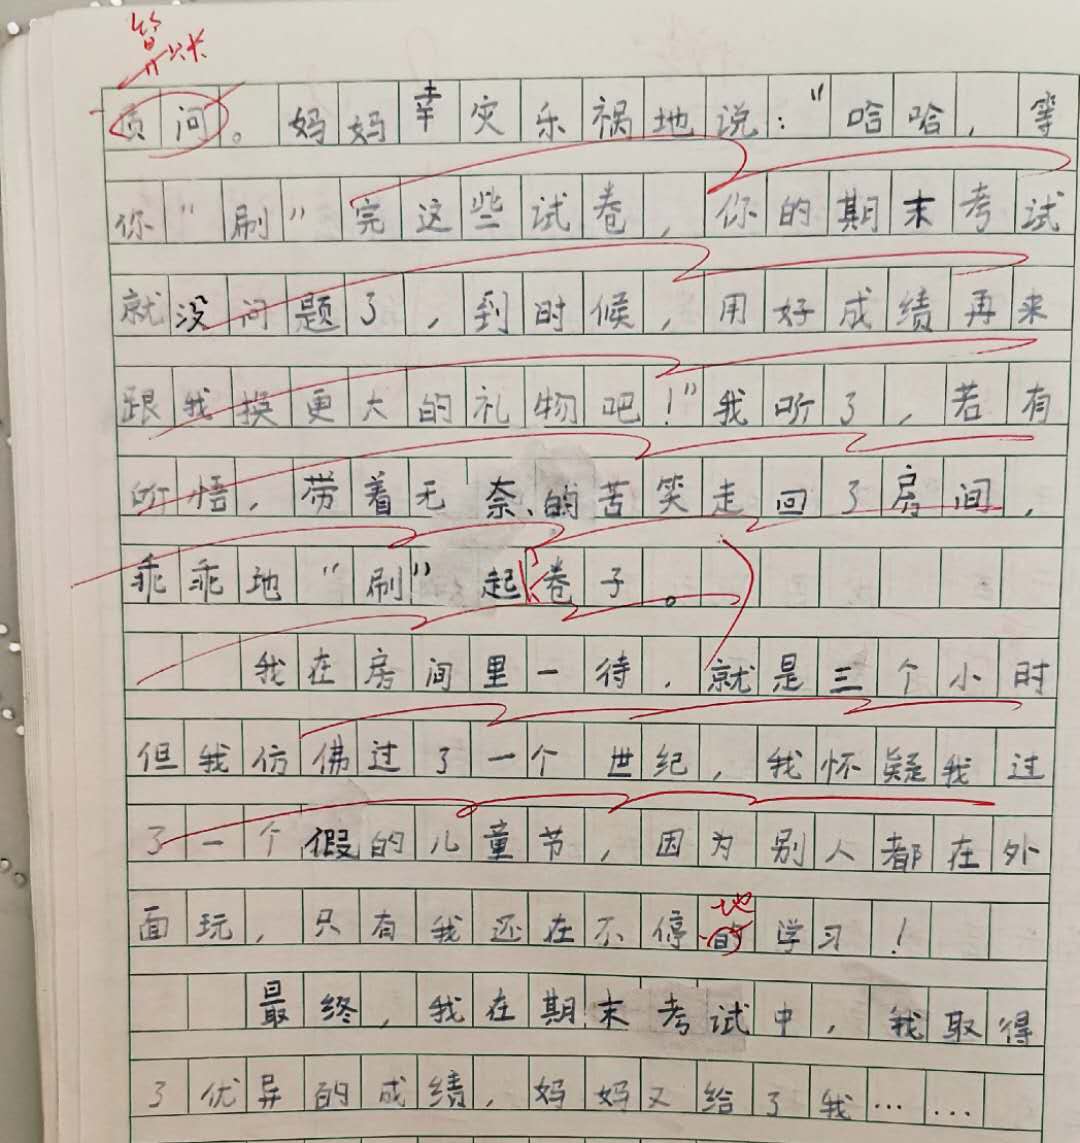 质问。妈妈幸灾乐祸地说:“哈哈,等
你“刷”完这些试卷,你的期末考试
就没问题了,到时候,用好成绩再来
跟我换更大的礼物吧!”我听了,若有
所悟,带着无奈的苦笑走回了房间,
乖乖地“刷”起卷子。
我在房间里一待,就是三个小时
但我仿佛过了一个世纪,我怀疑我过
了一个假的儿童节,因为别人都在外
地
面玩,只有我还在不停的学习!
最终,我在期末考试中,我取得
了优异的成绩,妈妈又给了我……